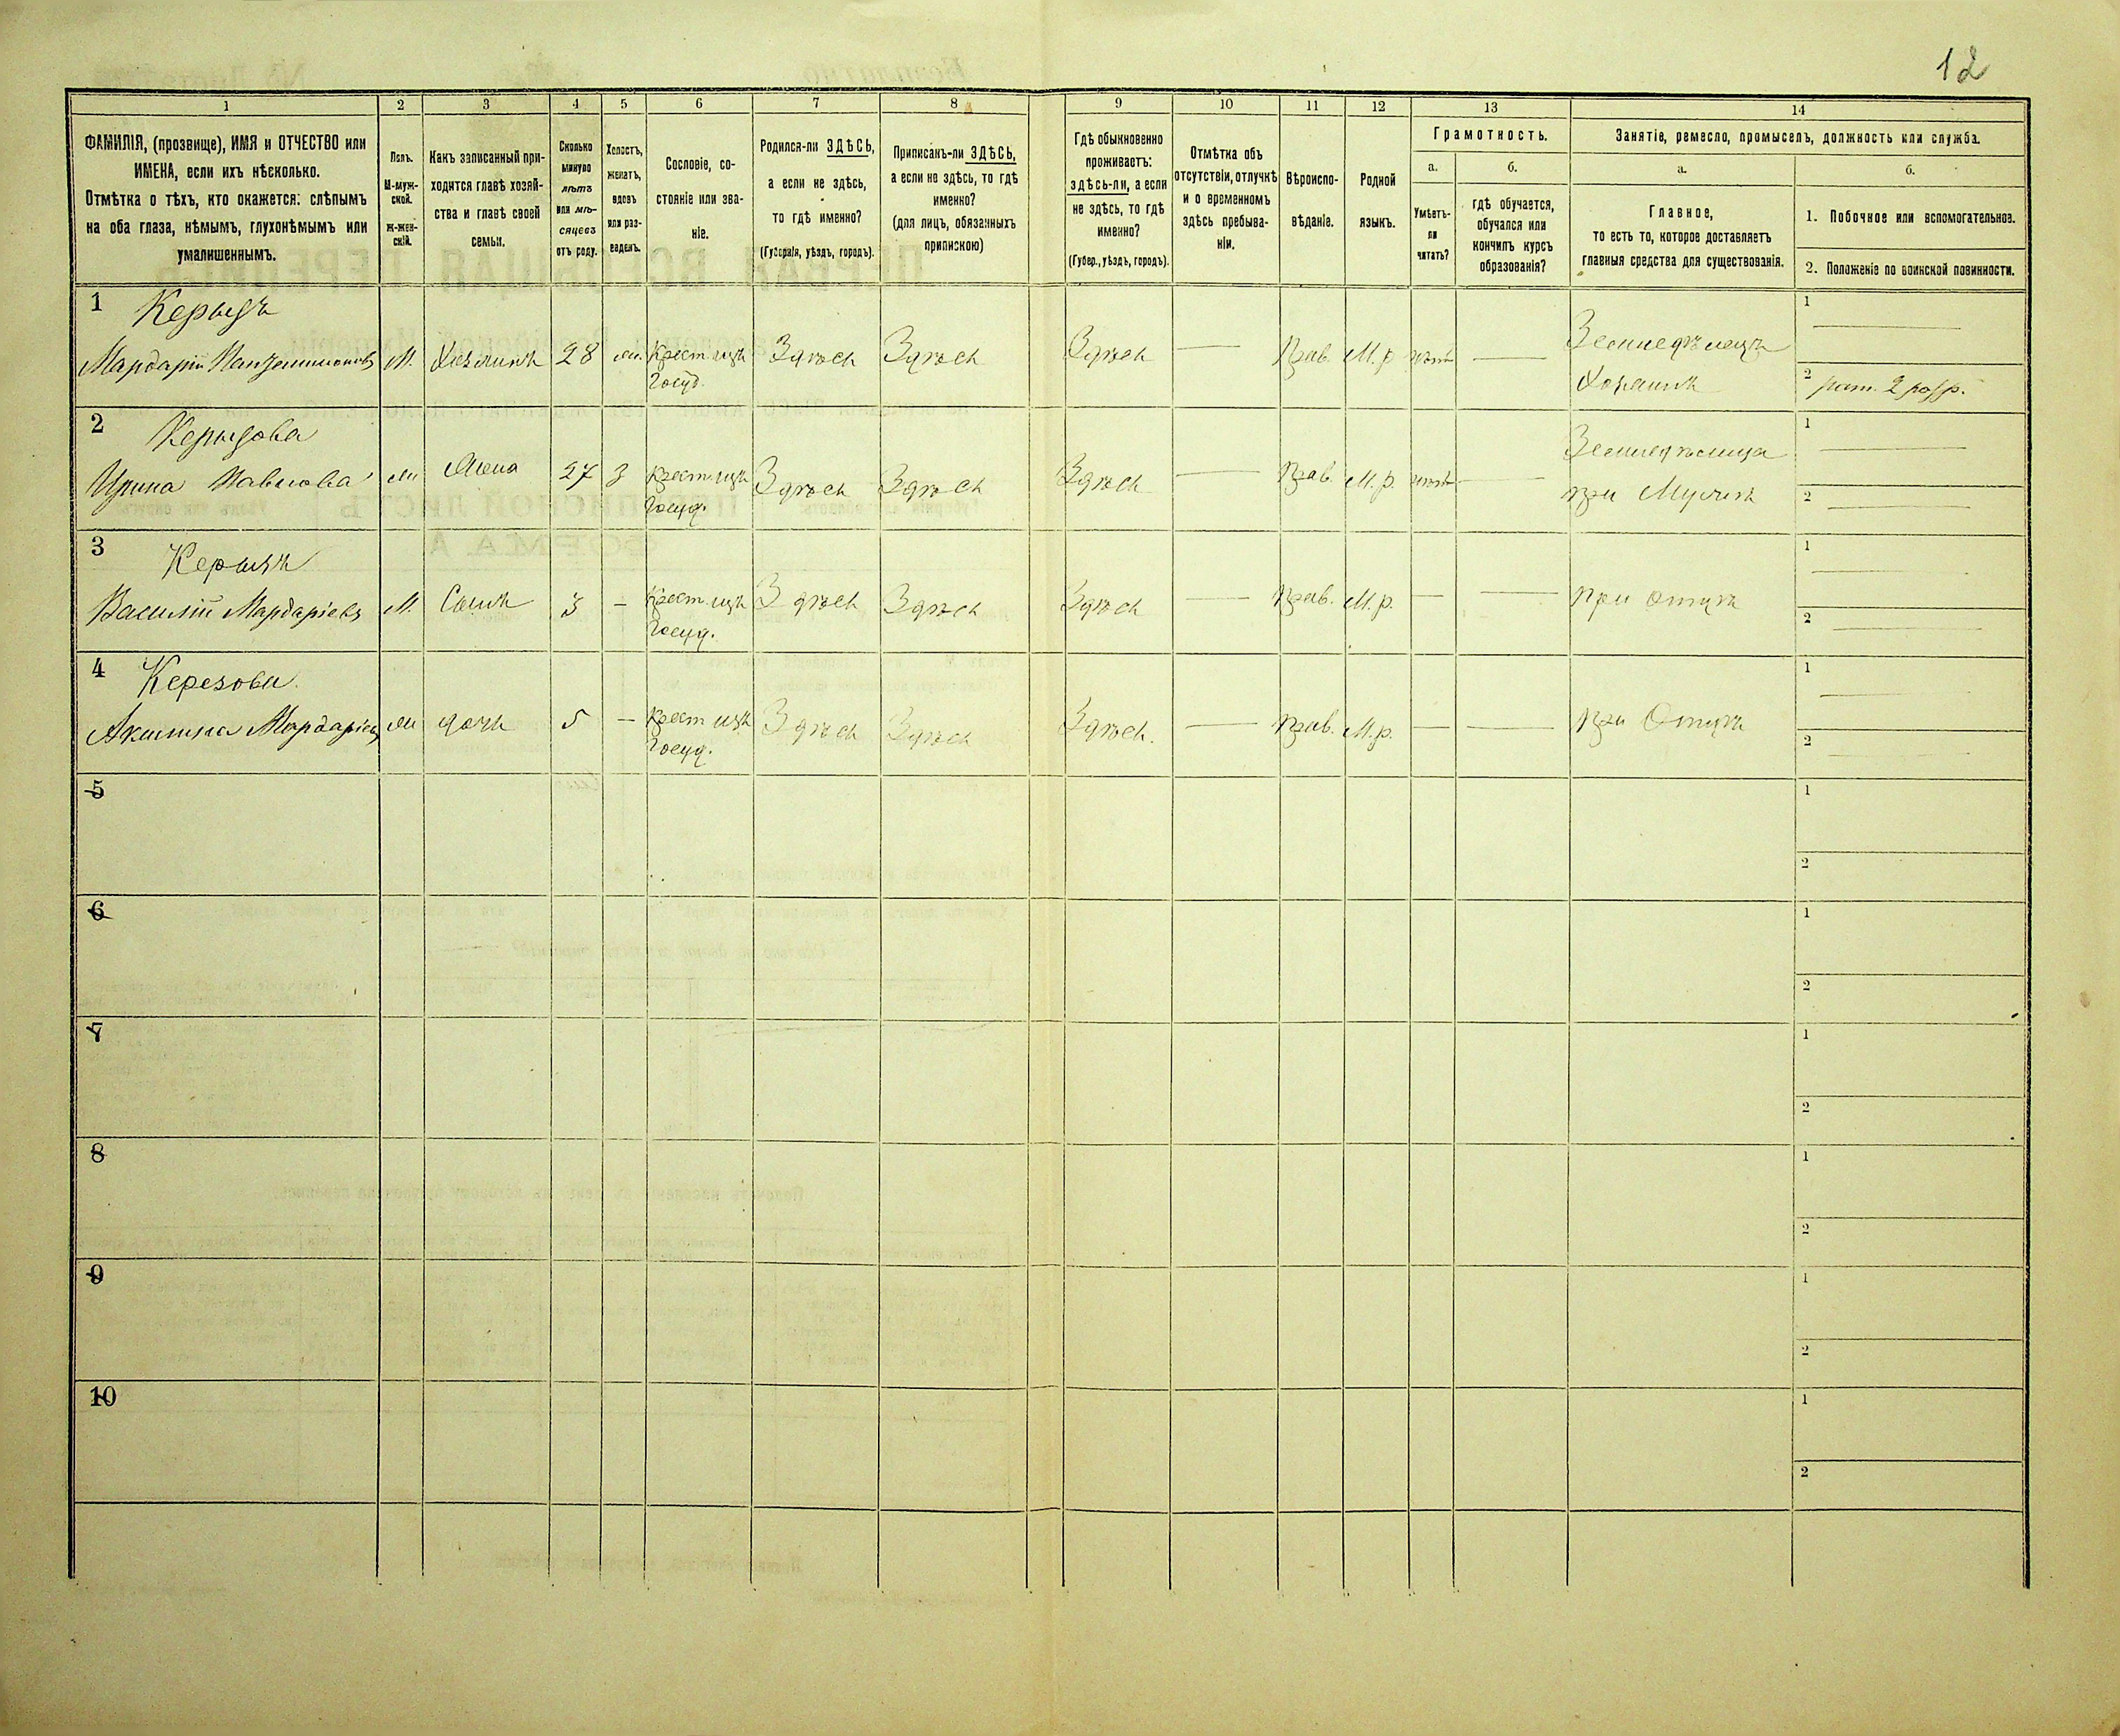 12
1 2 3 4 5 6 7 8 9 10 11 12 13 14
ФАМИЛІЯ, (прозвище), ИМЯ и ОТЧЕСТВО или
ИМЕНА, если ихъ нѣсколько.
Отмѣтка о тѣхъ, кто окажется: слѣпымъ
на оба глаза, нѣмымъ, глухонѣмымъ или
умалишеннымъ.
Полъ.
М-муж-
ской.
ж-жен-
скій.
Какъ записанный при-
ходится главѣ хозяй-
ства и главѣ своей
семьи.
Сколько
минуло
лѣтъ
или мѣ-
сяцевъ
отъ роду.
Холостъ,
женатъ,
вдовъ
или раз-
веденъ.
Сословіе, со-
стояніе или зва-
ніе.
Родился-ли ЗДѢСЬ,
а если не здѣсь,
то гдѣ именно?
(Губернія, уѣздъ, городъ).
Приписанъ-ли ЗДѢСЬ,
а если не здѣсь, то гдѣ
именно?
(для лицъ, обязанныхъ
припискою)
Гдѣ обыкновенно
проживаетъ:
здѣсь-ли, а если
не здѣсь, то гдѣ
именно?
(Губер., уѣздъ, городъ).
Отмѣтка объ
отсутствіи, отлучкѣ
и о временномъ
здѣсь пребыва-
ніи.
Вѣроиспо-
вѣданіе.
Родной
языкъ.
Грамотность.
а.
Умѣетъ-
ли
читать?
б.
гдѣ обучается,
обучался или
кончилъ курсъ
образованія?
Занятіе, ремесло, промыселъ, должность или служба.
а.
Главное,
то есть то, которое доставляетъ
главныя средства для существованія.
б.
1. Побочное или вспомогательное.
2. Положеніе по воинской повинности.
1
Мардарій М. Хозяинъ 28 Крест. Здѣсь Здѣсь Здѣсь Прав. М.р нѣтъ Земледѣлецъ 1
Госуд. Хозяинъ 2 рат. 2 разр.
2
Ирина Павлова Жена 27 З Крест. Здѣсь Здѣсь Здѣсь Прав. М.р. нѣтъ 1
Госуд. при Мужѣ 2
3
Василій Мардаріевъ М. Сынъ 3 – Крест. Здѣсь Здѣсь Здѣсь Прав. М.р. — — при отцѣ 1
Госуд. 2
4
Акилина дочь 5 – Крест. Здѣсь Здѣсь Здѣсь. Прав. М.р. — — при Отцѣ 1
Госуд. 2
5 1
2
6 1
2
7 1
2
8 1
2
9 1
2
10 1
2